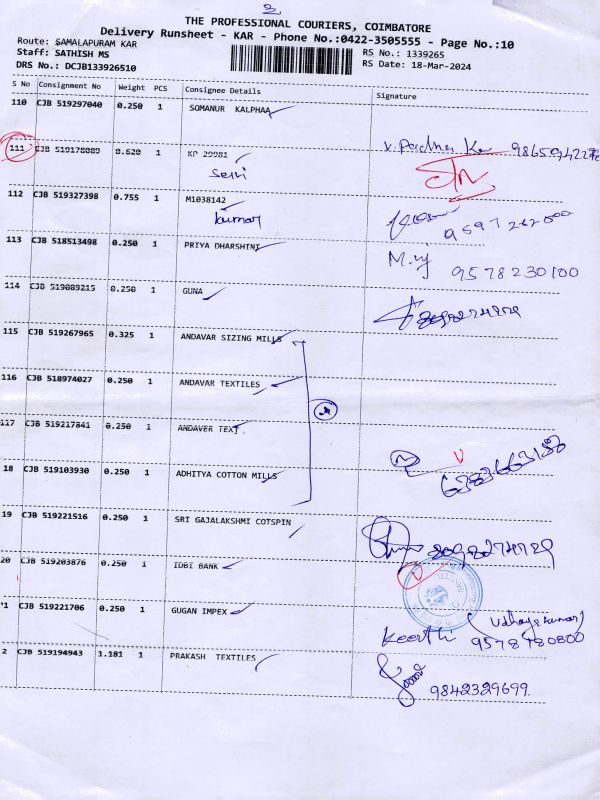 3
THE PROFESSIONAL COURIERS, COIMBATORE
Delivery Runsheet - KAR - Phone No.:0422-3505555 - Page No.:10
Route: SAMALAPURAM KAR
RS No.: 1339265
Staff: SATHISH MS
RS Date: 18-Mar-2024
DRS No.: DCJB133926510
S No Consignment No Weight PCS Consignee Details Signature
110 CJB 519297040 0.250 1 SOMANUR KALPHAA
111 CJB 519178089 0.620 1 KP 29981
Selvi
112 CJB 519327398 0.755 1 M1038142
Kumar
113 CJB 518513498 0.250 1 PRIYA DHARSHINI M.vj 9578230100
114 CJB 519089215 0.250 1 GUNA
115 CJB 519267965 0.325 1 ANDAVAR SIZING MILLS
116 CJB 518974027 0.250 1 ANDAVAR TEXTILES
117 CJB 519217841 0.250 1 ANDAVER TEXT.
18 CJB 519103930 0.250 1 ADHITYA COTTON MILLS
19 CJB 519221516 0.250 1 SRI GAJALAKSHMI COTSPIN
20 CJB 519203876 0.250 1 IDBI BANK
'1 CJB 519221706 0.250 1 GUGAN IMPEX Keerthi (Udhayakumar)
9578780800
2 CJB 519194943 1.181 1 PRAKASH TEXTILES
9842329699.